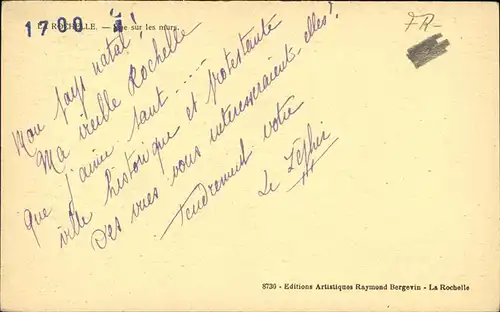 1700
LA ROCHELLE. — Vue sur les murs.
FR-
Mon pays natal!
Ma vieille Rochelle
que j'aime tant....
ville historique et protestante
Des vues vous intéresseraient-elles?
Tendrement votre
Le
8730 - Editions Artistiques Raymond Bergevin - La Rochelle